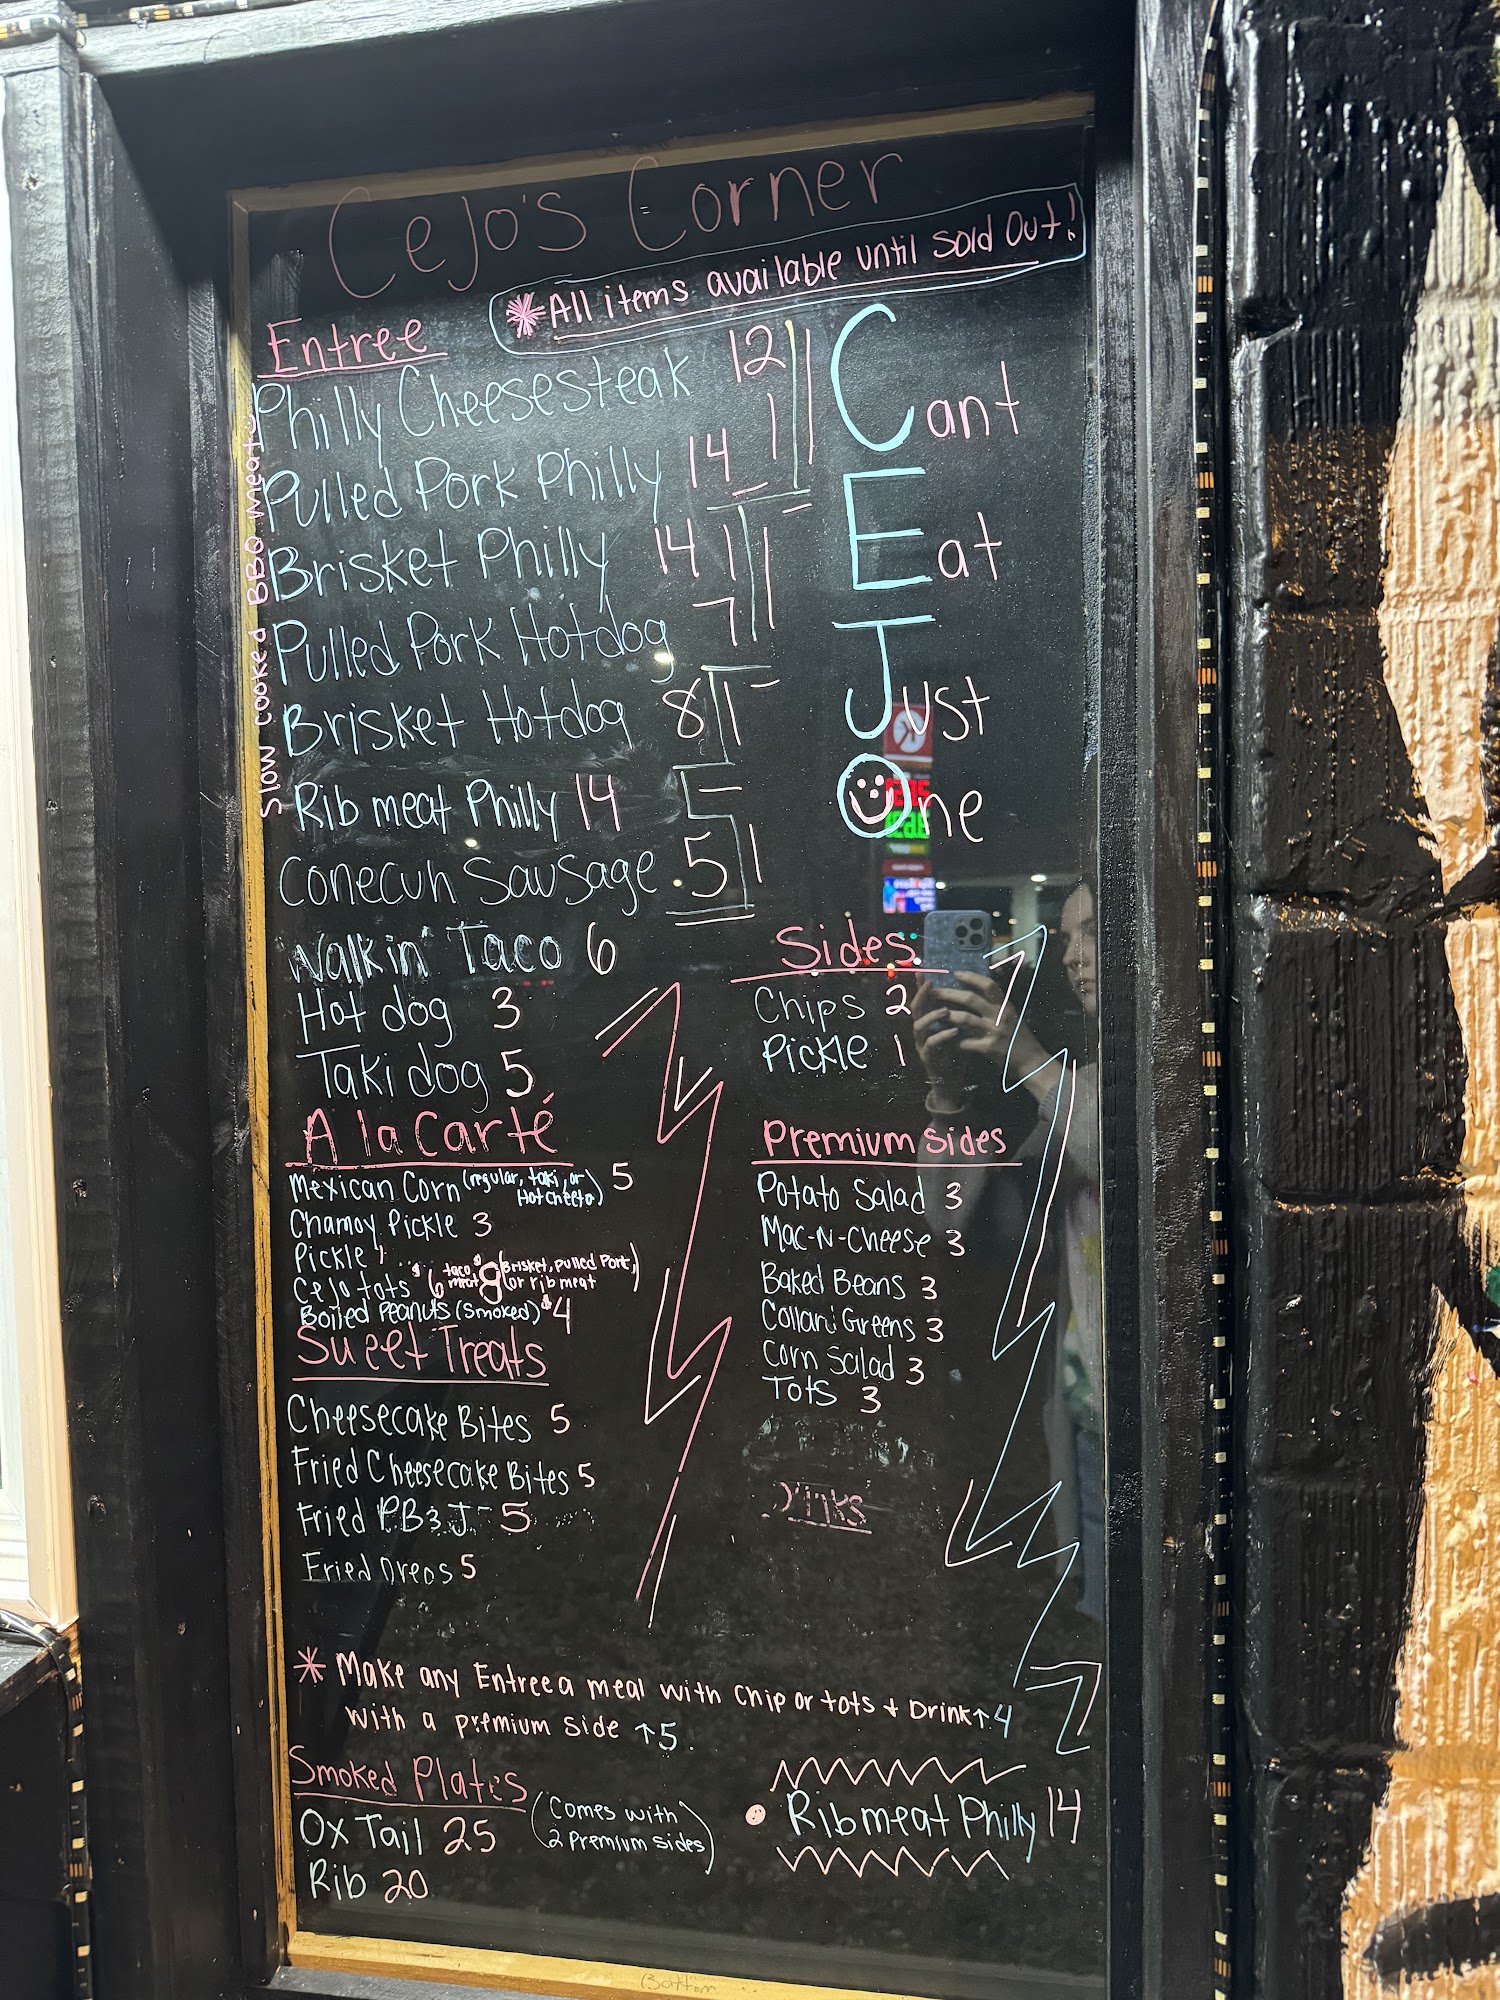 CeJo's Corner
*All items available until Sold Out!
Entree
Philly Cheesesteak 12
Pulled Pork Philly 14
Brisket Philly 14
Pulled Pork Hotdog 7
Brisket Hotdog 8
Rib meat Philly 14
Conecuh Sausage .5
Walkin' Taco 6
Hot dog 3
Taki dog 5
Slow cooked BBQ meats
Cant
Eat
Just
One
A la Carté
Mexican Corn (regular, taki, or Hot cheeto) 5
Chamoy Pickle 3
Pickle 1
CeJo tots $6 taco meat $8 (Brisket, pulled Pork, or rib meat)
Boiled Peanuts (Smoked) $4
Sweet Treats
Cheesecake Bites 5
Fried Cheesecake Bites 5
Fried PB&J 5
Fried Oreos 5
Sides
Chips 2
Pickle 1
Premium Sides
Potato Salad 3
Mac-N-Cheese 3
Baked Beans 3
Collard Greens 3
Corn Salad 3
Tots 3
Drinks
* Make any Entree a meal with Chip or tots + Drink ↑4
with a premium side ↑5.
Smoked Plates
Ox Tail 25
(Comes with
2 Premium sides)
Rib 20
Ribmeat Philly 14
Bottom